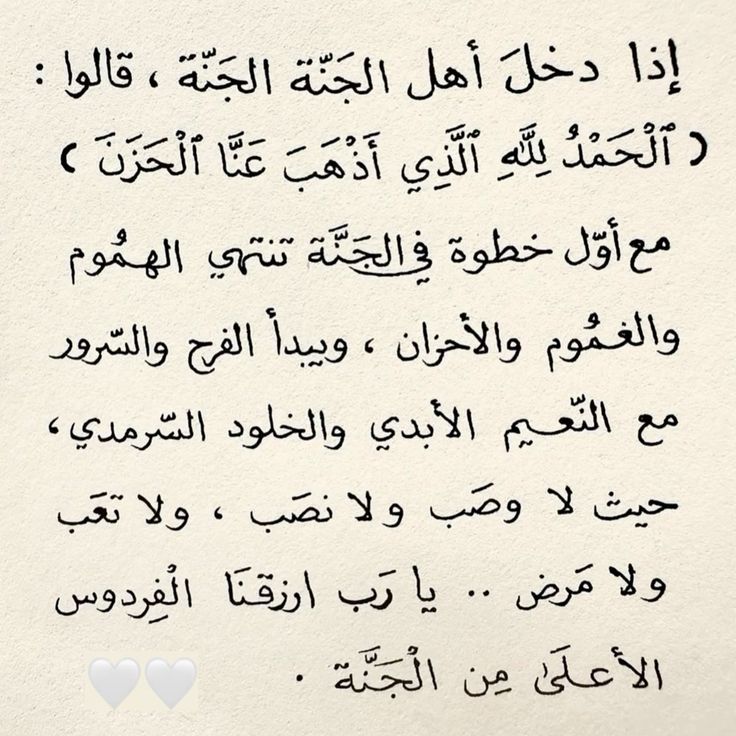 إذا دخلَ أهل الجَنّة الجَنّة ، قالوا :
( ٱلْحَمْدُ لِلَّهِ ٱلَّذِي أَذْهَبَ عَنَّا ٱلْحَزَنَ )
مع أوّل خطوة في الجَنَّة تنتهي الهمُوم
والغمُوم والأحزان ، ويبدأ الفرح والسّرور
مع النّعيم الأبدي والخلود السّرمدي ،
حيث لا وصَب ولا نصَب ، ولا تعَب
ولا مَرض .. يا رَب ارزقنَا الْفِردوس
الأعلَىٰ مِن الْجَنَّة .